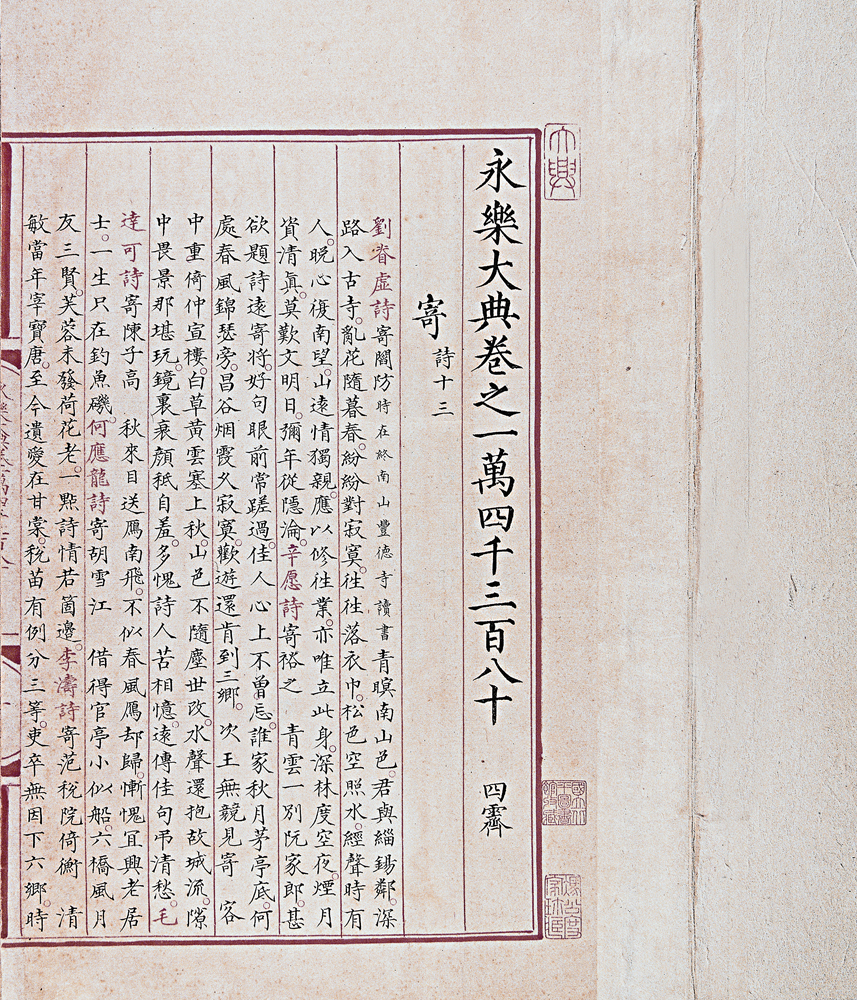 永樂大典卷之一萬四千三百八十 四霽
寄 詩十三
劉眘虛詩寄閻防時在終南山豐德寺讀書青暝南山色。君與緇錫鄰。深
路入古寺。亂花隨暮春。紛紛對寂寞。徃徃落衣巾。松色空照水。經聲時有
人。晚心復南望。山遠情獨親。應以修徃業。亦唯立此身。深林度空夜。煙月
資清眞。莫歎文明日。彌年從隱淪。辛愿詩寄裕之 青雲一別阮家郎。甚
欲題詩遠寄將。好句眼前常蹉過。佳人心上不曾忘。誰家秋月茅亭底。何
處春風錦瑟旁。昌谷烟霞久寂寞。歡遊還肯到三鄉。次王無競見寄 客
中重倚仲宣樓。白草黃雲塞上秋。山色不隨塵世改。水聲還抱故城流。隙
中畏景那堪玩。鏡裏衰顏秖自羞。多愧詩人苦相憶。遠傳佳句弔清愁。毛
達可詩寄陳子高 秋來目送鴈南飛。不似春風鴈却歸。慚愧冝興老居
士。一生只在釣魚磯。何應龍詩寄胡雪江 借得官亭小似船。六橋風月
友三賢。芙蓉未發荷花老。一㸃詩情若箇邊。李濤詩寄范稅院倚衡 清
敏當年宰寶唐。至今遺愛在甘棠。稅苗有例分三等。吏卒無因下六鄉。時
大典